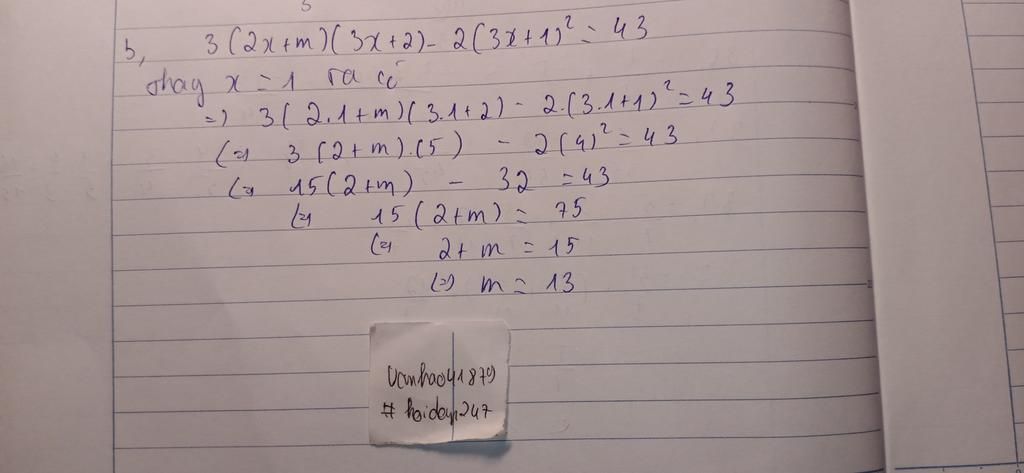 b, 3(2x+m)(3x+2) - 2(3x+1)² = 43
thay x = 1 ta có
=) 3(2.1+m)(3.1+2) - 2.(3.1+1)² = 43
(=) 3(2+m).(5) - 2(4)² = 43
(=) 15(2+m) - 32 = 43
(=) 15(2+m) = 75
(=) 2+m = 15
(=) m = 13
Vanhao41879
# hoidap247